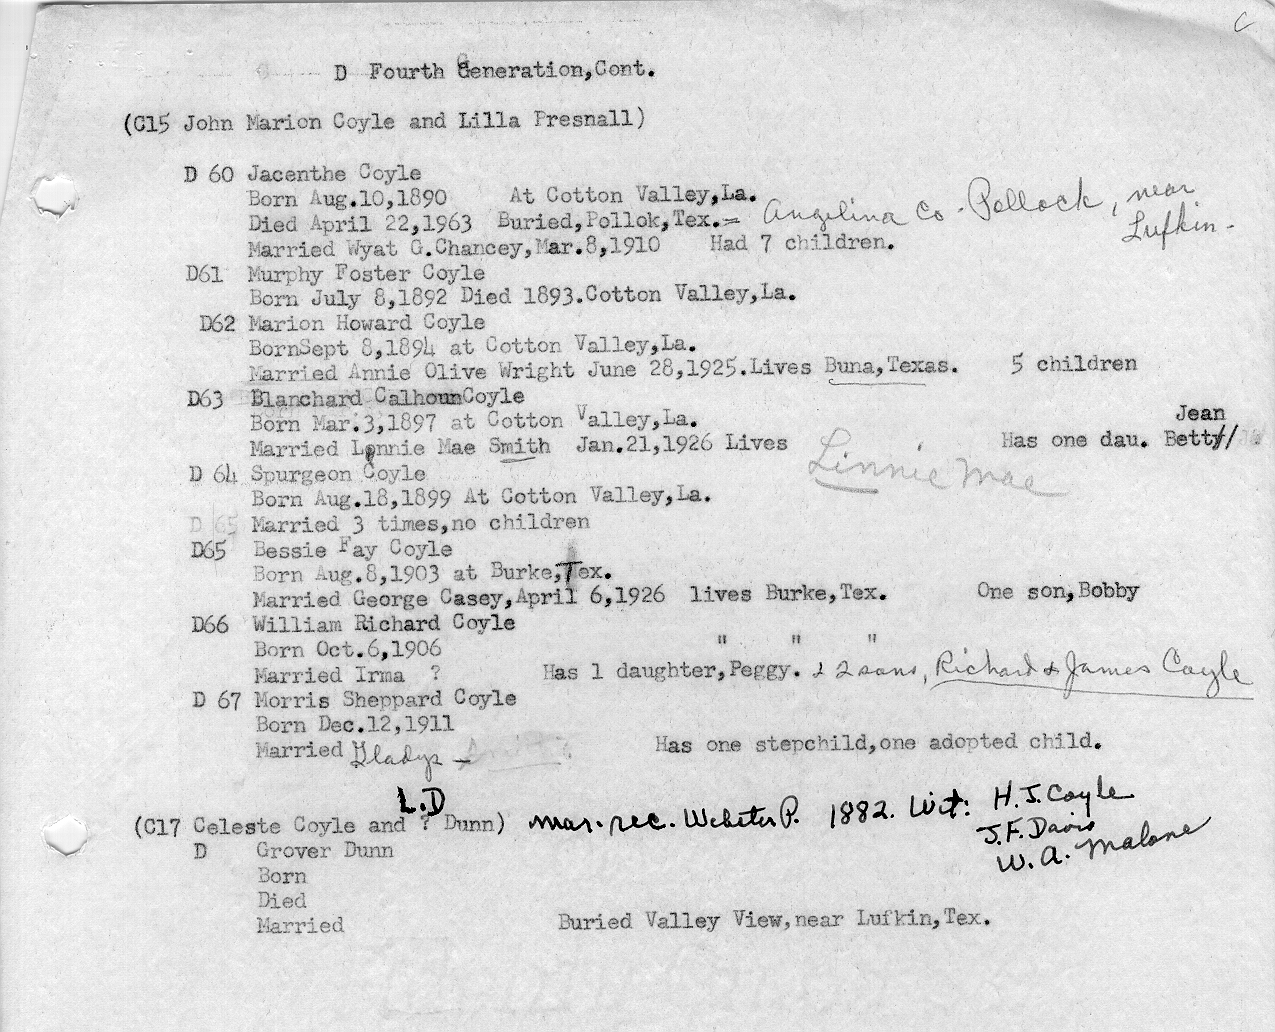 D Fourth Generation,Cont.
(C15 John Marion Coyle and Lilla Presnall)
D 60 Jacenthe Coyle
Born Aug.10,1890 At Cotton Valley,La.
Died April 22,1963 Buried,Pollok,Tex.= Angelina Co - Pollock, near Lufkin -
Married Wyat G.Chancey,Mar.8,1910 Had 7 children.
D61 Murphy Foster Coyle
Born July 8,1892 Died 1893.Cotton Valley,La.
D62 Marion Howard Coyle
BornSept 8,1894 at Cotton Valley,La.
Married Annie Olive Wright June 28,1925.Lives Buna,Texas. 5 children
D63 Blanchard CalhounCoyle
Born Mar.3,1897 at Cotton Valley,La. Jean
Married Lonnie Mae Smith Jan.21,1926 Lives Has one dau. Betty/
Linnie Mae
D 64 Spurgeon Coyle
Born Aug.18,1899 At Cotton Valley,La.
D 65 Married 3 times,no children
D65 Bessie Fay Coyle
Born Aug.8,1903 at Burke,Tex.
Married George Casey,April 6,1926 lives Burke,Tex. One son,Bobby
D66 William Richard Coyle
Born Oct.6,1906 " " "
Married Irma ? Has 1 daughter,Peggy. & 2 sons, Richard & James Coyle
D 67 Morris Sheppard Coyle
Born Dec.12,1911
Married Gladys - Has one stepchild,one adopted child.
L.D
(C17 Celeste Coyle and ? Dunn) mar. rec. Webster P. 1882. Wit: H.J. Coyle
J.F. Davis
W. A. Malone
D Grover Dunn
Born
Died
Married Buried Valley View,near Lufkin,Tex.